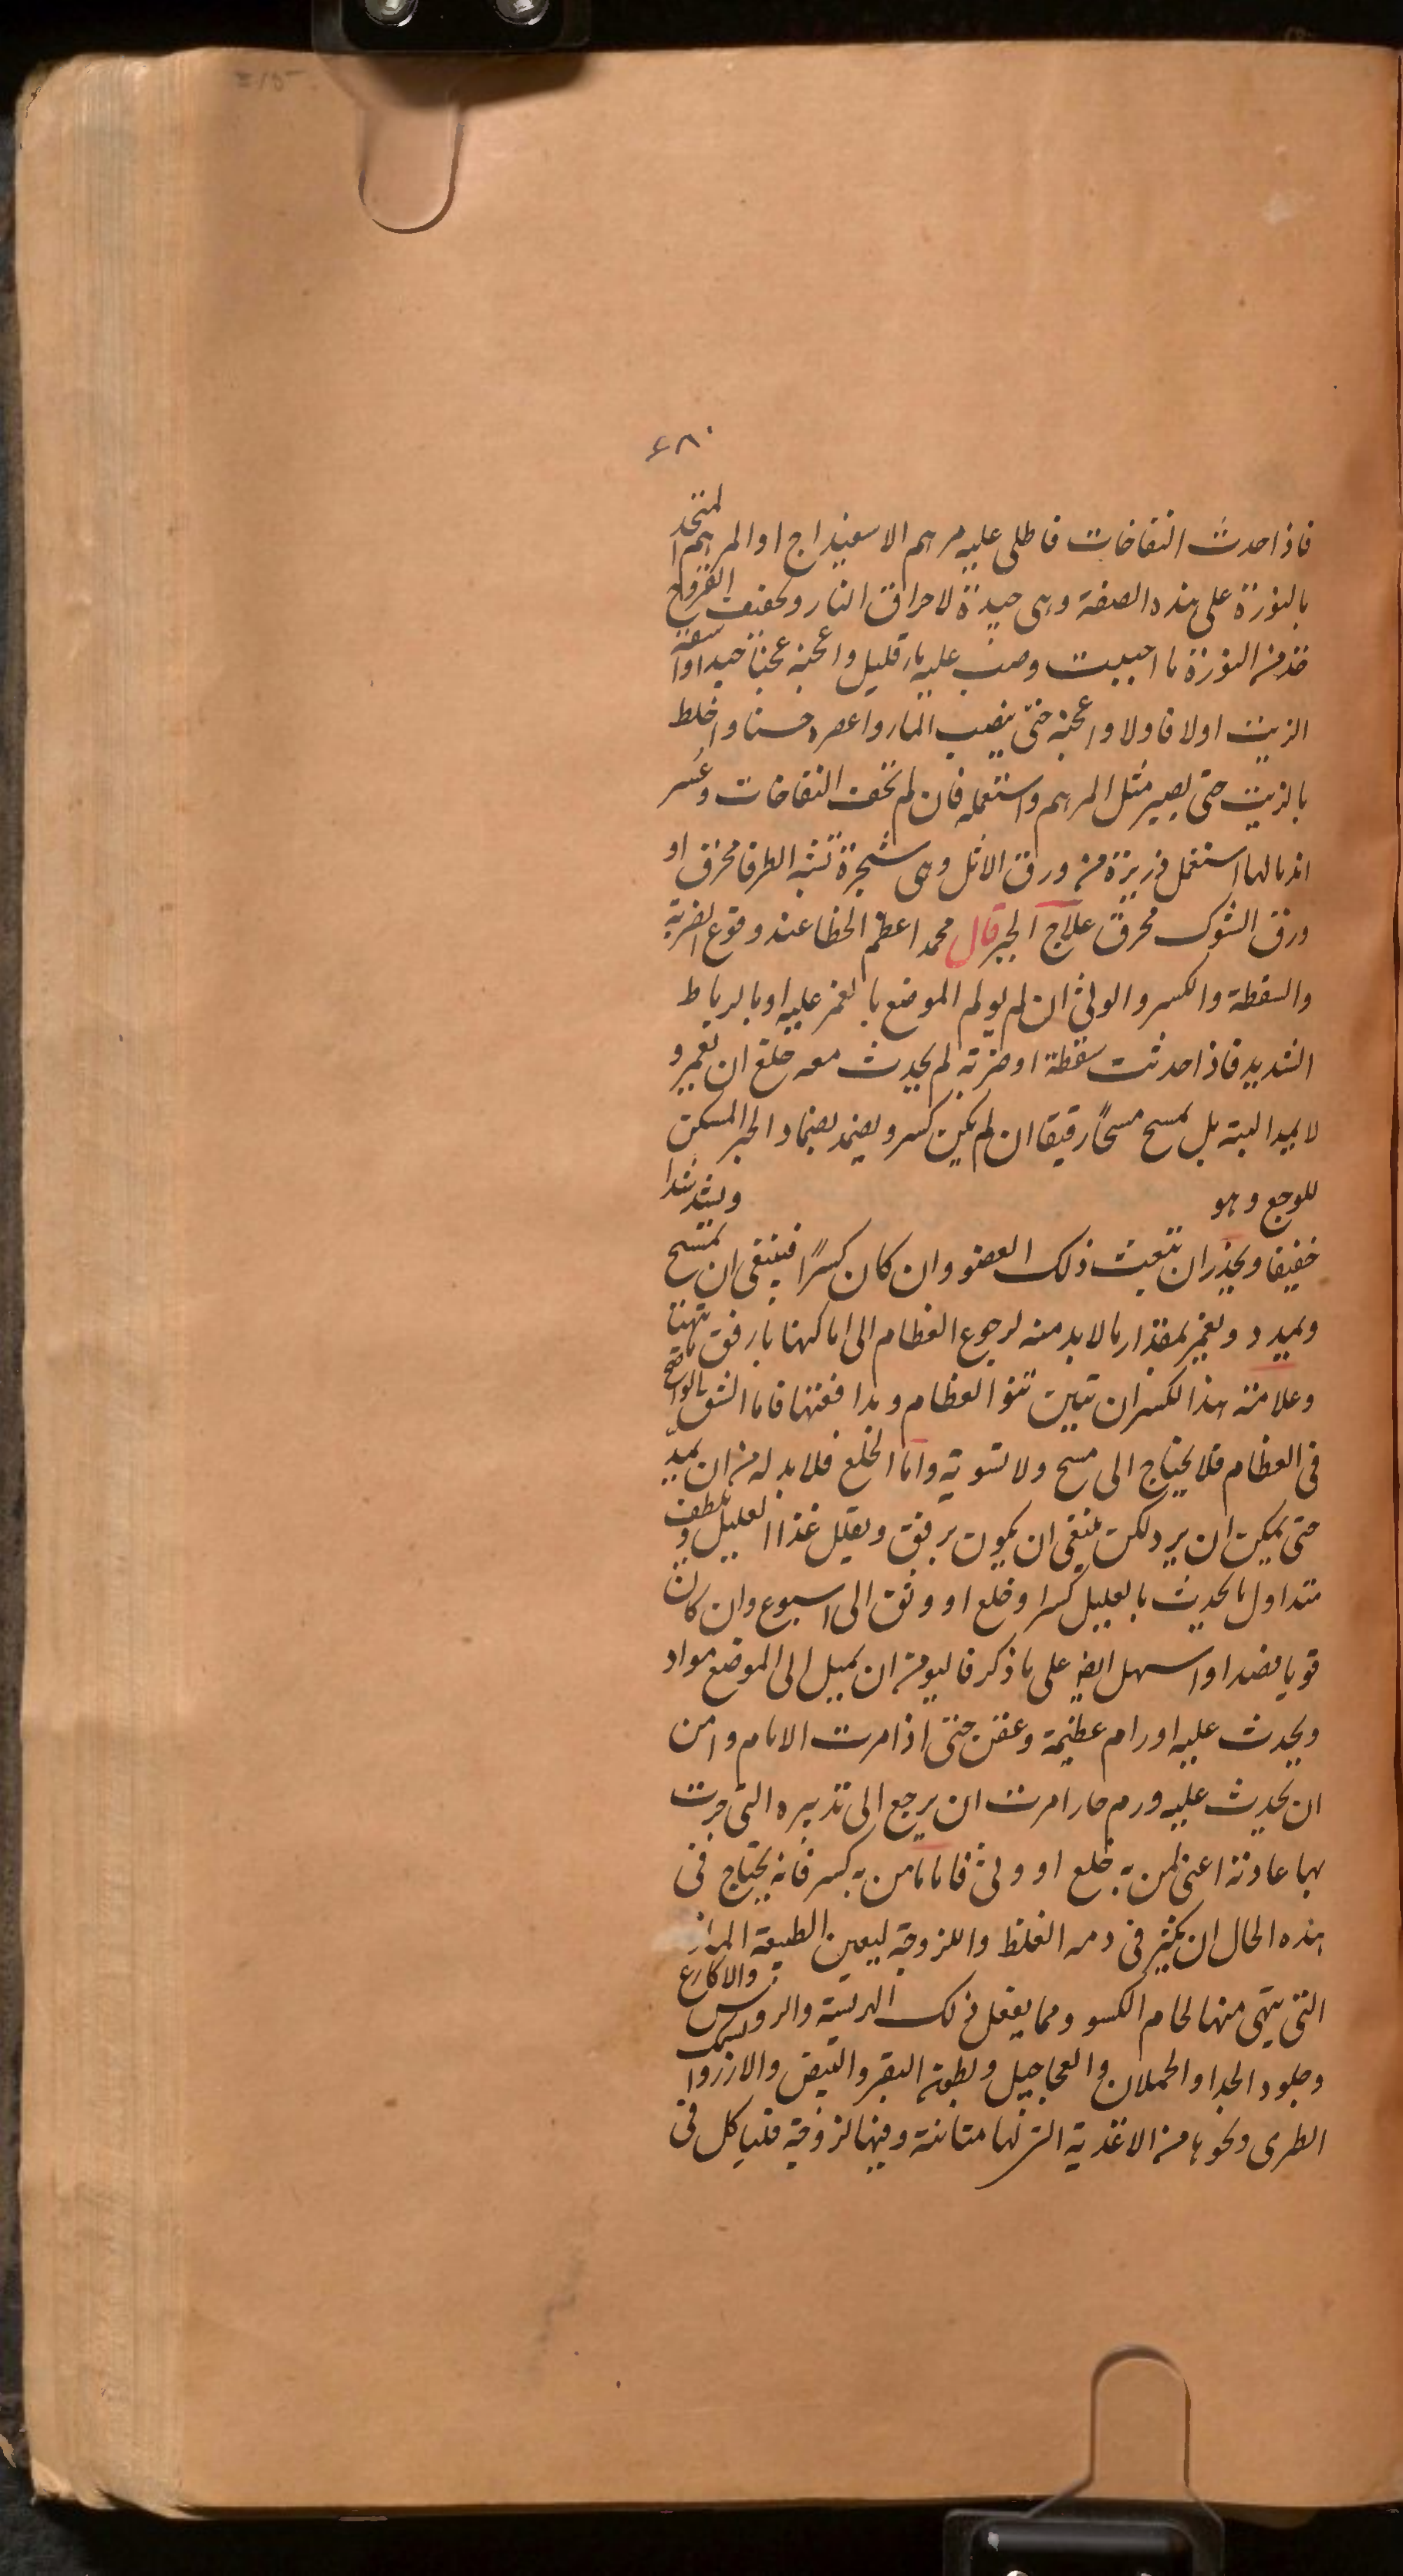 ٤٨٠
فاذا حدث النفاخات فاطلى عليه مرهم الاسفيداج او المرهم المتخذ
بالنورة على هذه الصفة وهى جيدة لاحراق النار وتجفف القروح
خذ من النورة ما احببت وصب عليه ماء قليل واعجنه عجناً جيدا واسقه
الزيت اولا فاولا واعجنه حتى ينصب الماء واعصره حسنا واخلط
بالزيت حتى يصير مثل المرهم واستعمله فان لم تجف النفاخات وعسر
اندمالها استعمل ذريرة من ورق الاثل وهى شجرة تشبه الطرفا محرق او
ورق الشوك محرق علاج الجبر قال محمد اعظم الخطا عند وقوع الضربة
والسقطة والكسر والوثى ان لم يولم الموضع بالغمز عليه او بالرباط
الشديد فاذا حدثت سقطة او ضربة لم يحدث معه خلع ان تغمز و
لا يمد البتة بل يمسح مسحاً رقيقا ان لم يكن كسر ويضمد بضماد الجبر المسكن
للوجع وهو ويشد شدا
خفيفا ويحذر ان يتعب ذلك العضو وان كان كسراً فينبغى ان يمسح
ويمدد ويغمز بمقدار ما لابد منه لرجوع العظام الى اماكنها بارفق
وعلامة هذا الكسر ان تبين نتو العظام ومدافعتها فاما الشق الواقع
فى العظام فلا يحتاج الى مسح ولا تسوية واما الخلع فلابد له من ان يمد
حتى يمكن ان يرد لكن ينبغى ان يكون برفق ويقلل غذا العليل ويلطف
منذ اول ما يحدث بالعليل كسر او خلع او وثى الى اسبوع وان كان
قويا فصد او اسهل ايضا على ما ذكر فاليومن ان يميل الى الموضع مواد
ويحدث عليه اورام عظيمة وعفن حتى اذا مرت الايام وامن
ان يحدث عليه ورم حار امرت ان يرجع الى تدبيره التى جرت
بها عادته اعنى لمن به خلع او وثى فاما من به كسر فانه يحتاج فى
هذه الحال ان يكثر فى دمه الغلظ واللزوجة ليعين الطبيعة
التى يتهى منها لحام الكسر ومما يفعل ذلك الهريسة والروس والاكارع
وجلود الجدا والحملان والعجاجيل وبطون البقر والبيض والارز والسمك
الطرى ونحوها من الاغذية التى لها متانة وفيها لزوجة فلياكل فى